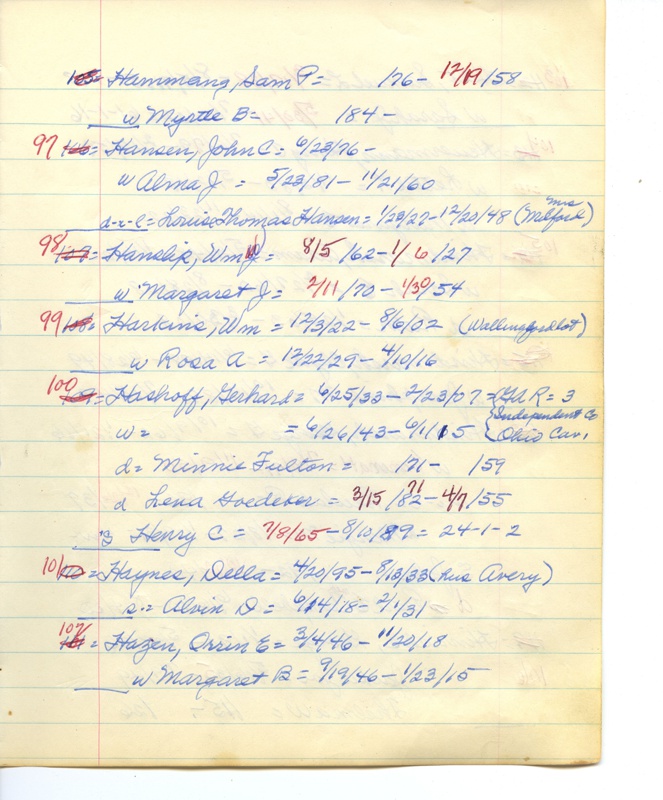 Hammang, Sam P = 176 - 12/19/58
w Myrtle B = 184 -
97 = Hansen, John C = 6/23/76 -
w Alma J = 5/23/81 - 11/21/60
d-r-l = Louise Thomas Hansen = 1/23/27 - 12/20/48 (Mrs Milford)
98 = Hanslip, Wm = 8/5/62 - 1/6/27
w Margaret J = 2/11/70 - 1/30/54
99 = Harkins, Wm = 12/3/22 - 8/6/02 (Wallingford lot)
w Rosa A = 12/22/29 - 4/10/16
100 = Hashoff, Gerhard = 6/25/33 - 2/23/07 = GAR = 3
w = = 6/26/43 - 6/1/15 { Independent Co Ohio Cav.
d = Minnie Fulton = 171 - 159
d Lena Goedeker = 3/15/82 71 - 4/7/55
s Henry C = 7/8/65 - 8/10/89 = 24-1-2
101 = Haynes, Della = 4/20/95 - 8/13/33 (hus Avery)
s. = Alvin D = 6/14/18 - 2/1/31
102 = Hazen, Orrin E = 3/4/46 - 11/20/18
w Margaret B = 9/19/46 - 1/23/15